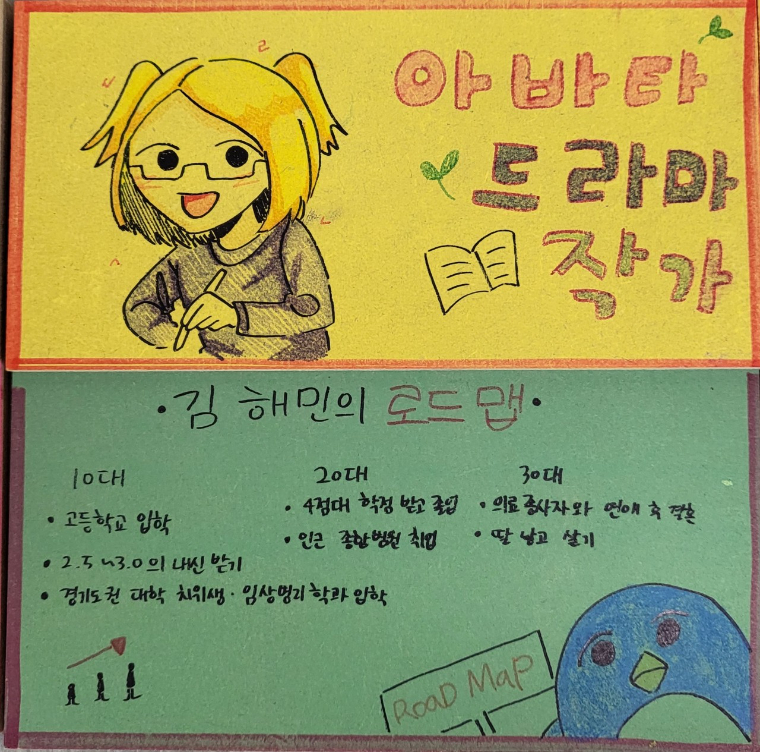 아바타
드라마
작가
•김해민의 로드맵•
10대
• 고등학교 입학
• 2.5~3.0의 내신 받기
• 경기도권 대학 치위생·임상병리학과 입학
20대
• 4점대 학점 받고 졸업
• 인근 종합병원 취업
30대
• 의료종사자와 연애 후 결혼
• 딸 낳고 살기
ROAD MAP